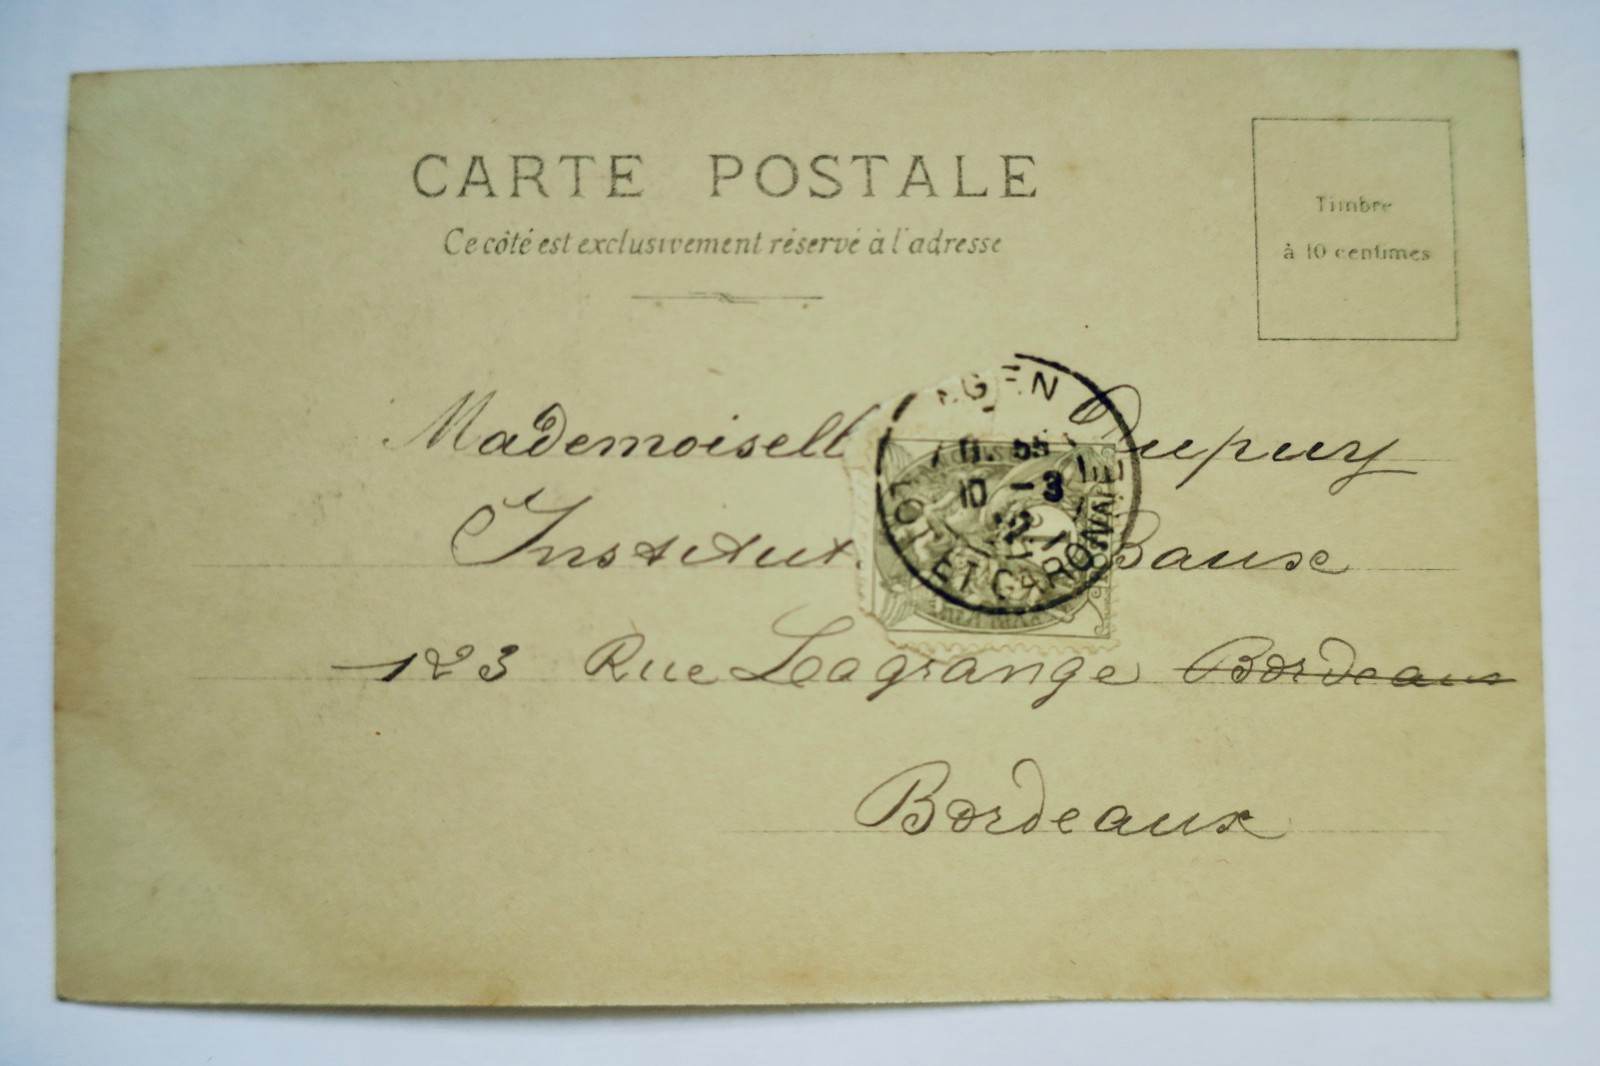 CARTE POSTALE
Ce côté est exclusivement réservé à l'adresse
Timbre
à 10 centimes
Mademoisell Dupuy
Institut Baux
123 Rue Lagrange Bordeaux
Bordeaux
AGEN
11 55
10 -3
LOT ET GARONNE